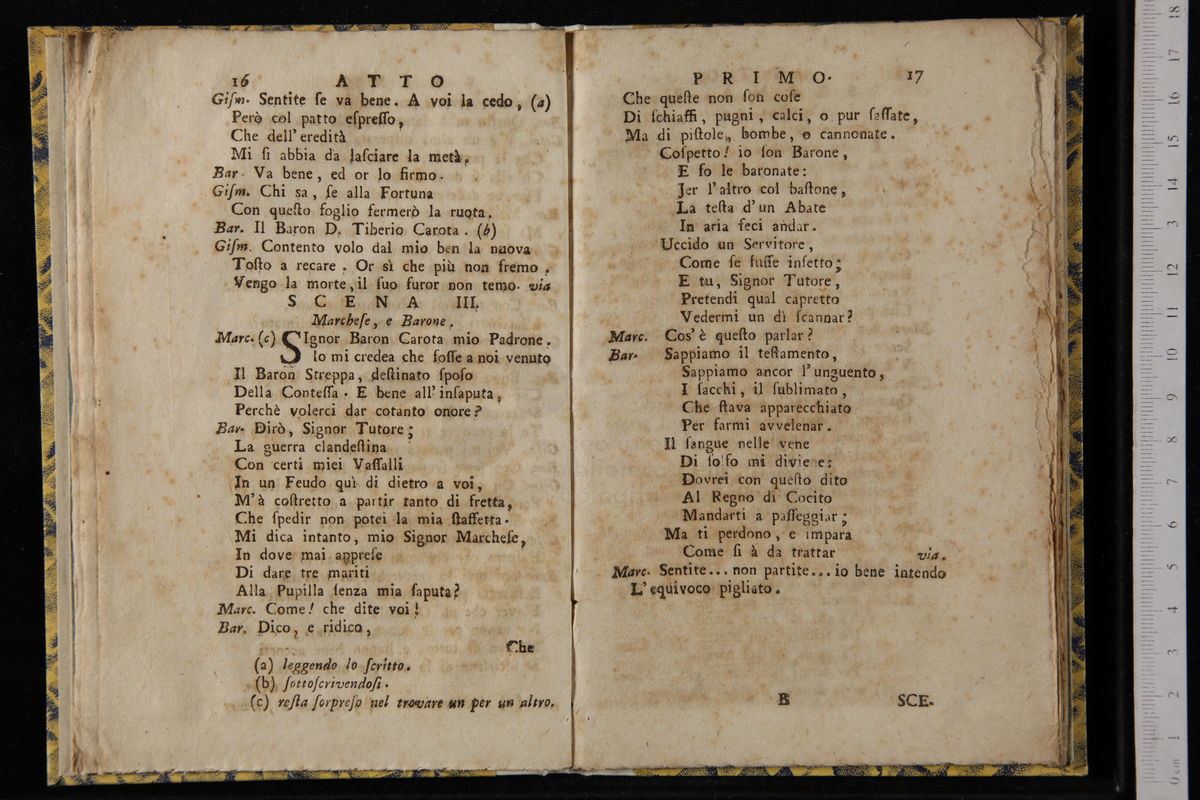 16 ATTO
Giſm. Sentite ſe va bene. A voi la cedo, (a)
Però col patto eſpreſſo,
Che dell'eredità
Mi ſi abbia da laſciare la metà.
Bar. Va bene, ed or lo firmo.
Giſm. Chi sa, ſe alla Fortuna
Con queſto foglio fermerò la ruota.
Bar. Il Baron D. Tiberio Carota. (b)
Giſm. Contento volo dal mio ben la nuova
Toſto a recare. Or sì che più non fremo.
Vengo la morte, il ſuo furor non temo. via
SCENA III.
Marcheſe, e Barone.
Marc. (c) SIgnor Baron Carota mio Padrone.
Io mi credea che foſſe a noi venuto
Il Baron Streppa, deſtinato ſpoſo
Della Conteſſa. E bene all'inſaputa,
Perchè volerci dar cotanto onore?
Bar. Dirò, Signor Tutore;
La guerra clandeſtina
Con certi miei Vaſſalli
In un Feudo quì di dietro a voi,
M'à coſtretto a partir tanto di fretta,
Che ſpedir non potei la mia ſtaffetta.
Mi dica intanto, mio Signor Marcheſe,
In dove mai appreſe
Di dare tre mariti
Alla Pupilla ſenza mia ſaputa?
Marc. Come! che dite voi!
Bar. Dico, e ridico,
Che
(a) leggendo lo ſcritto.
(b) ſottoſcrivendoſi.
(c) reſta ſorpreſo nel trovare un per un altro.
PRIMO. 17
Che queſte non ſon coſe
Di ſchiaffi, pugni, calci, o pur ſaſſate,
Ma di piſtole, bombe, o cannonate.
Coſpetto! io ſon Barone,
E fo le baronate:
Jer l'altro col baſtone,
La teſta d'un Abate
In aria feci andar.
Uccido un Servitore,
Come ſe fuſſe inſetto;
E tu, Signor Tutore,
Pretendi qual capretto
Vedermi un dì ſcannar?
Marc. Cos'è queſto parlar?
Bar. Sappiamo il teſtamento,
Sappiamo ancor l'unguento,
I ſacchi, il ſublimato,
Che ſtava apparecchiato
Per farmi avvelenar.
Il ſangue nelle vene
Di ſolfo mi divie e:
Dovrei con queſto dito
Al Regno di Cocito
Mandarti a paſſeggiar;
Ma ti perdono, e impara
Come ſi à da trattar via.
Marc. Sentite... non partite... io bene intendo
L'equivoco pigliato.
B SCE.